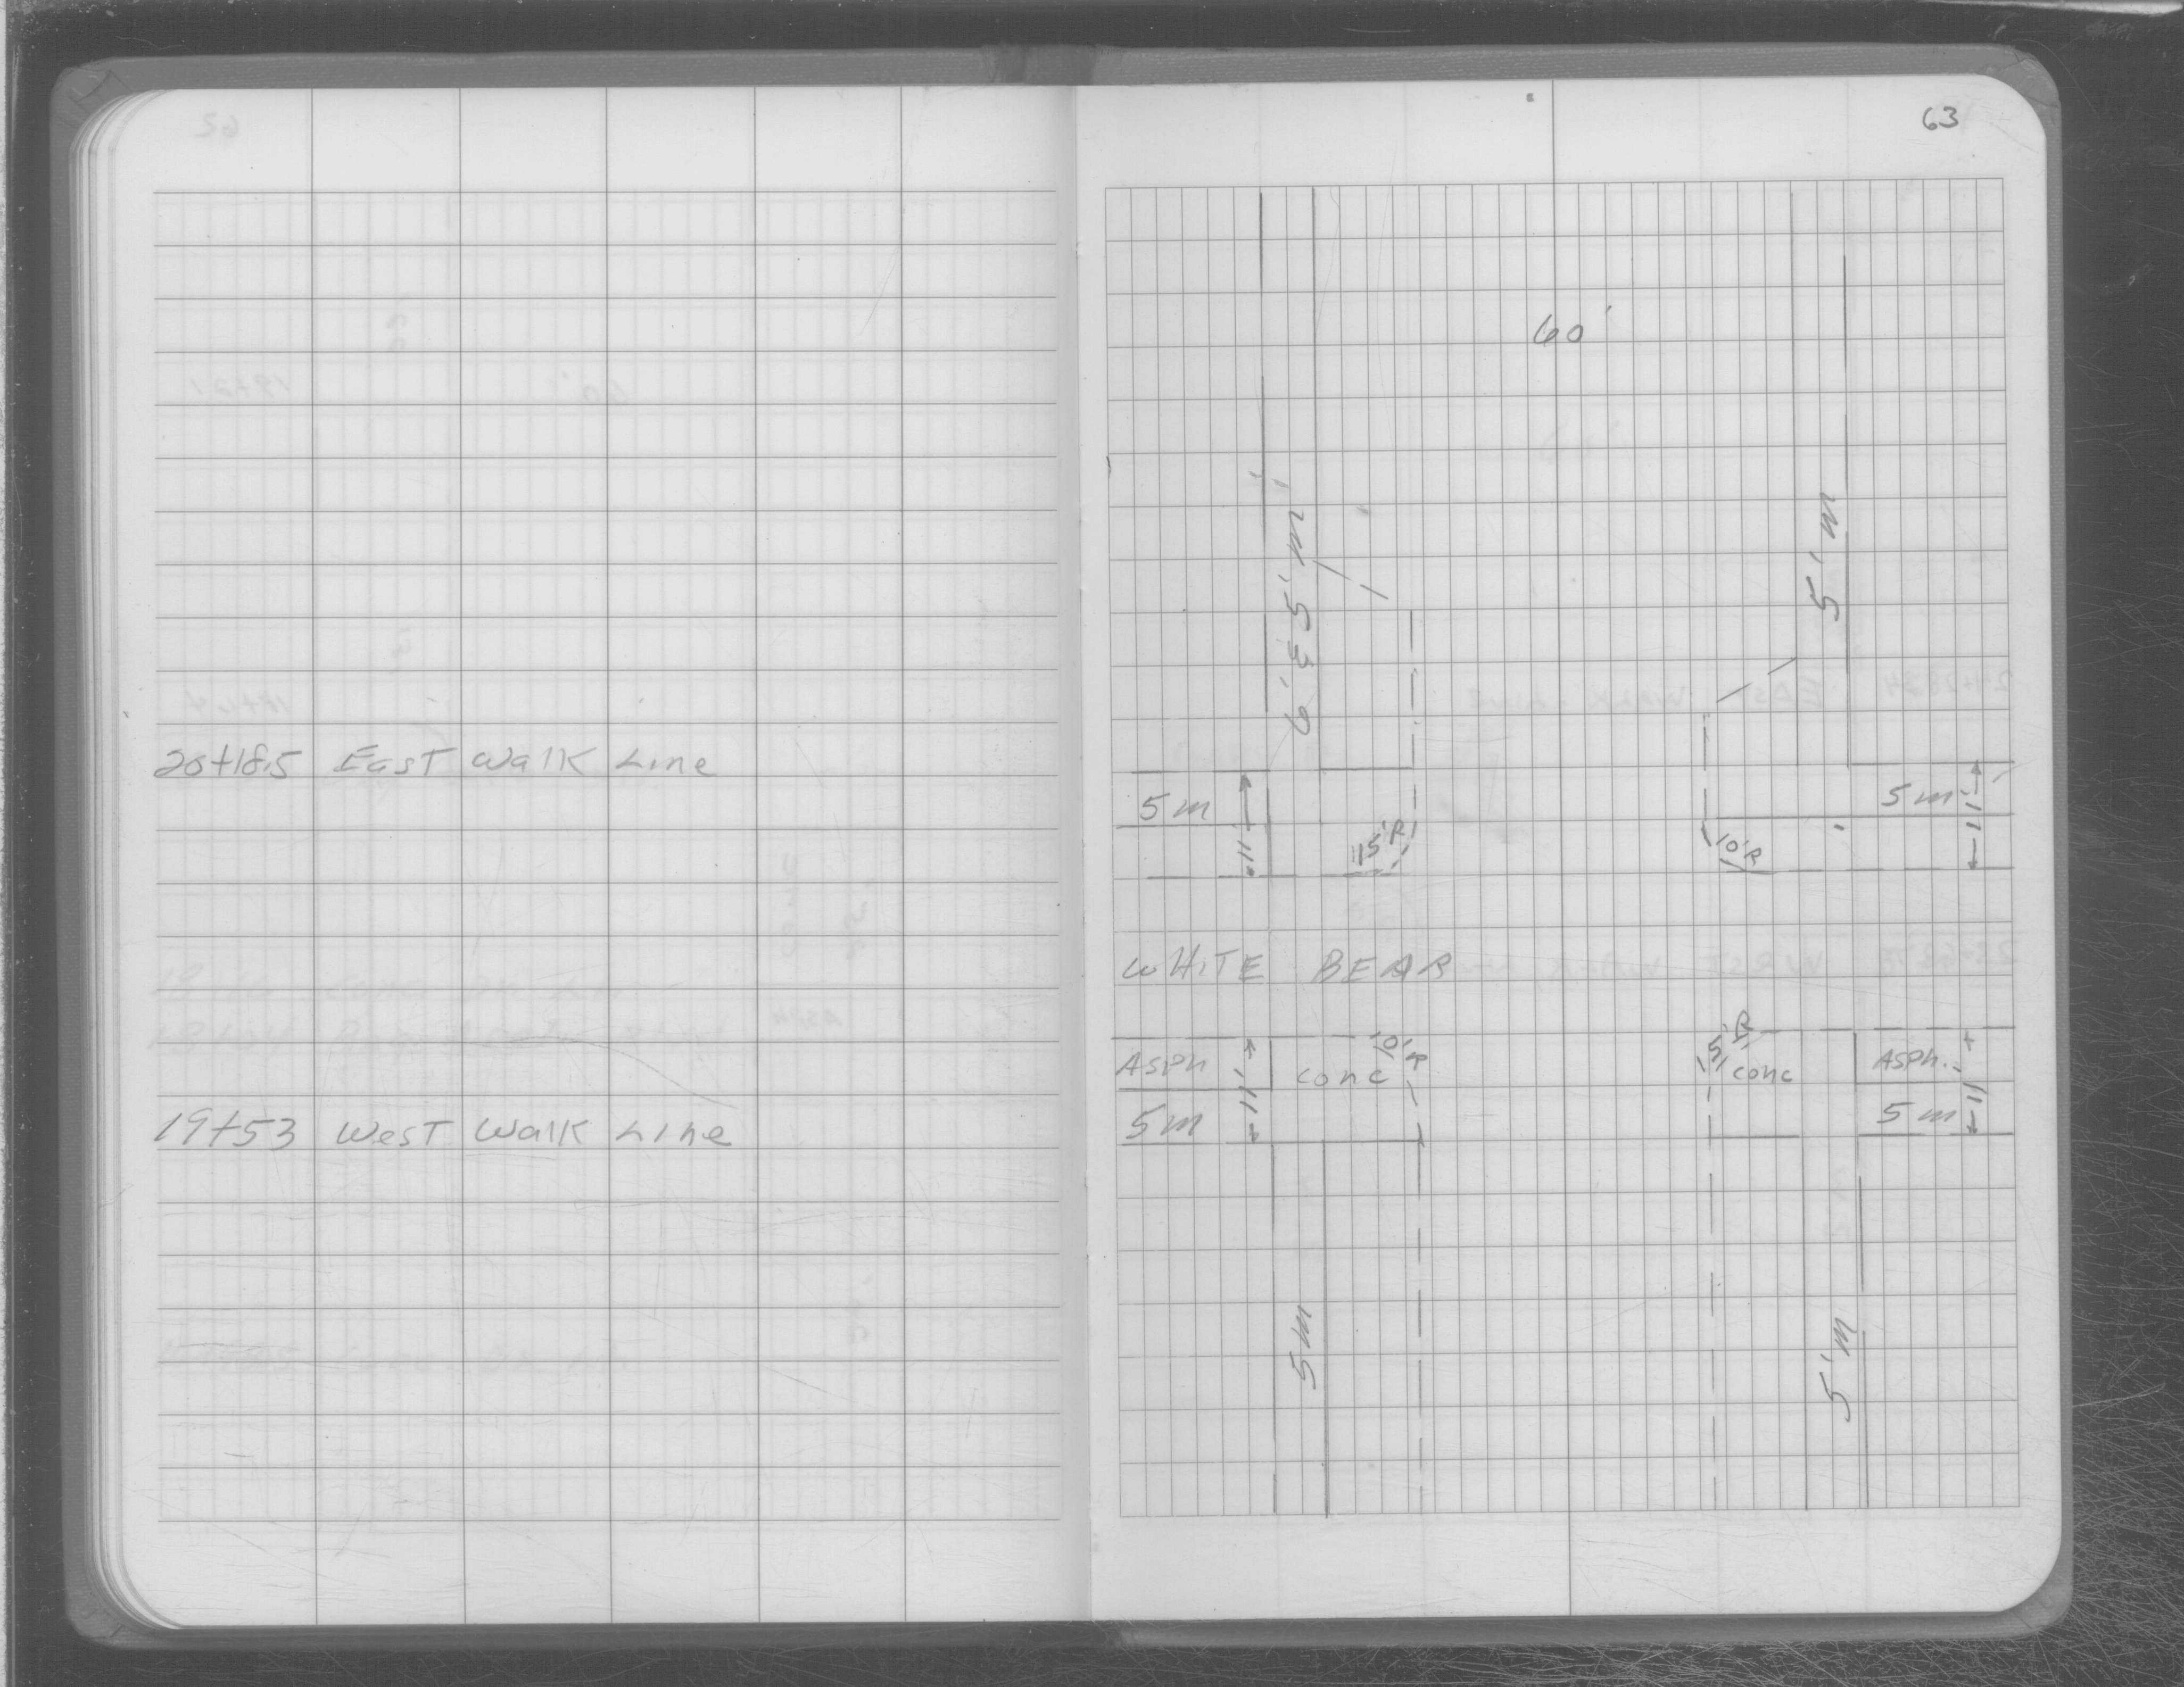 63
60'
6' & 5' m
5' m
20+18.5 East Walk Line
5 m
11'
15' R
10' R
5 m
11'
WHITE BEAR
Asph
11'
conc
10' R
15' R
conc
Asph.
11'
5 m
5 m
19+53 West Walk Line
5 m
5' m